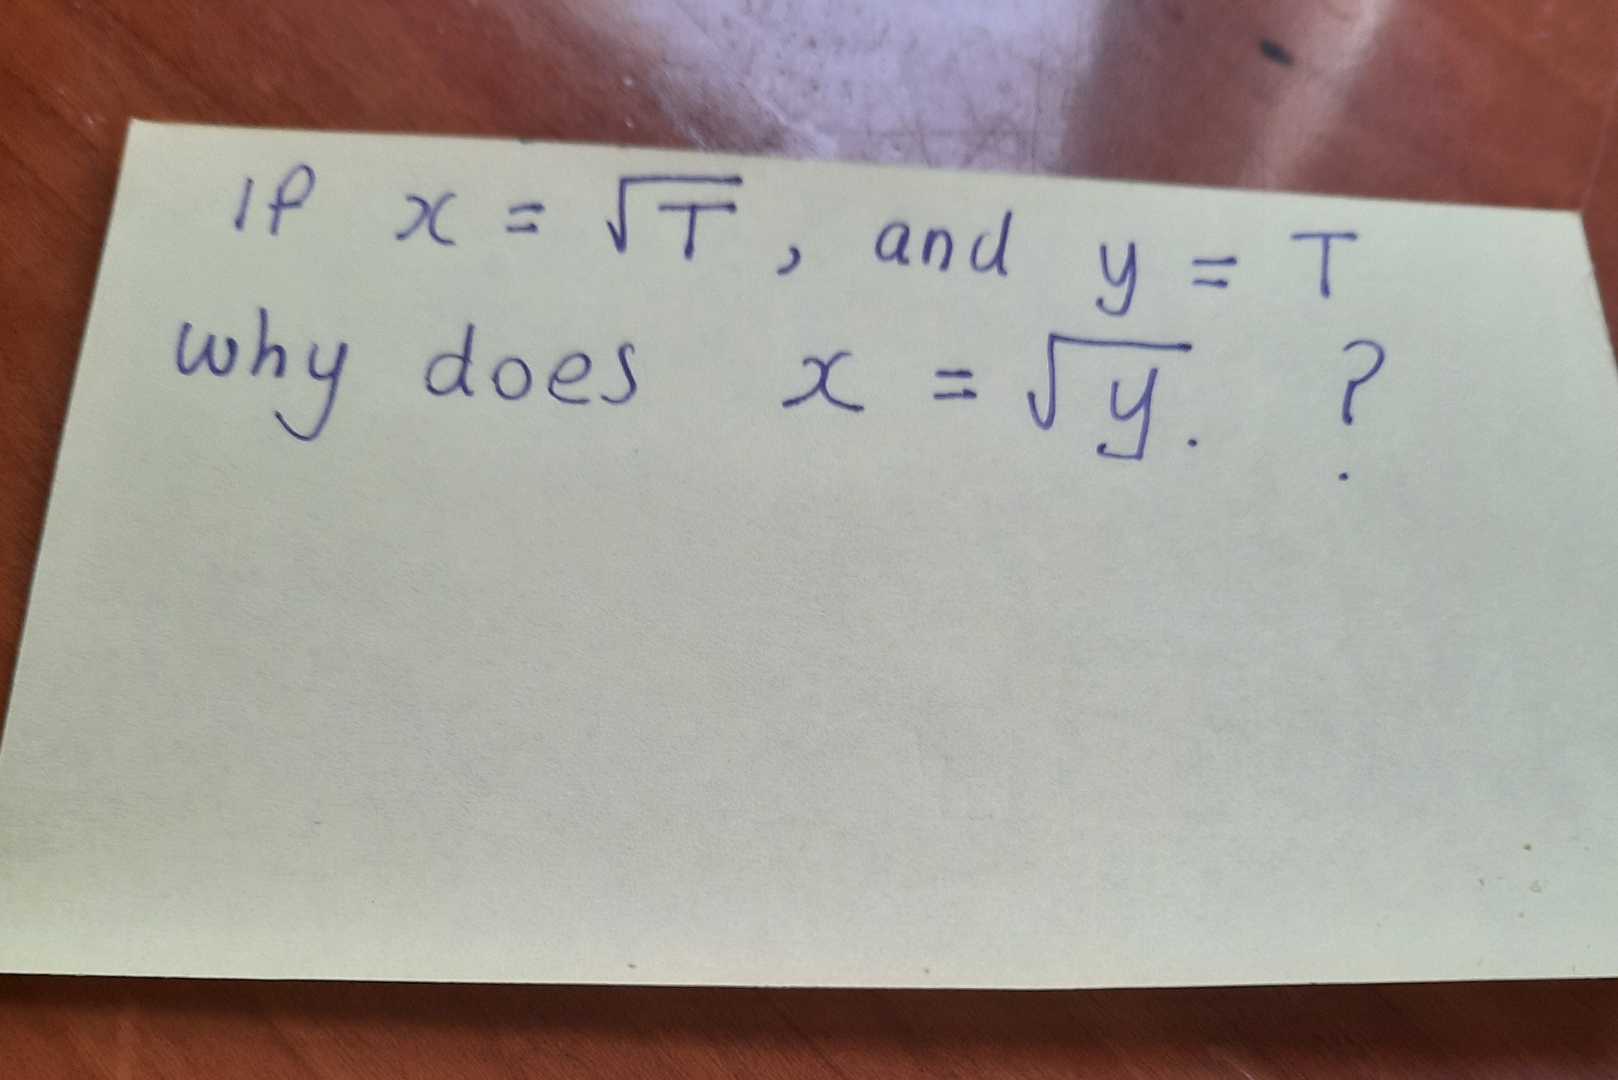 If x = √T, and y = T
why does x = √y. ?